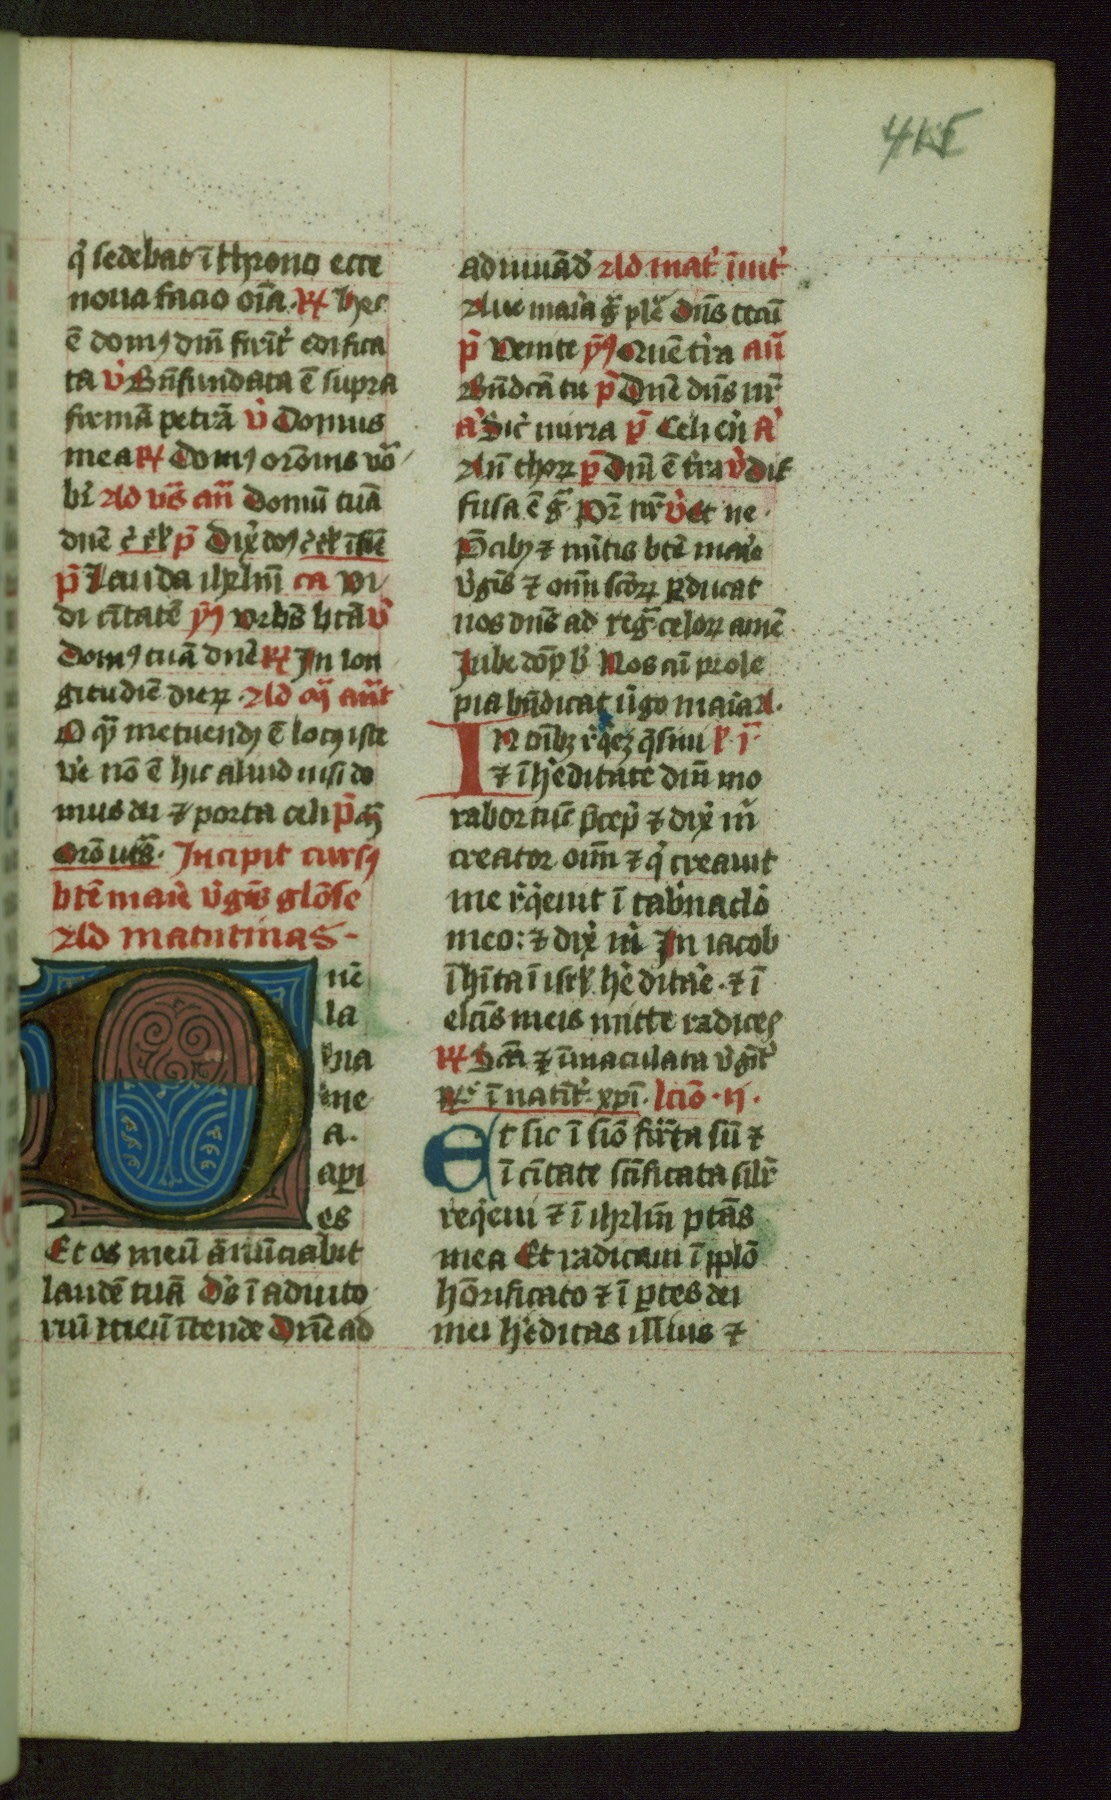 415
q̓ sedebat ī throno ecce
noua facio oīa. R̸ hec
ē domꝰ dn̄i firīt̓ edifica
ta v̓ Bn̄ fundata ē supra
firmā petrā v̓ Domus
mea R̸ Domꝰ orōnis vō
br̓ Ad vs̄ an̄ Domū tuā
dn̄e p̄ Dix̓
p̄ Lauda ihrlm̄ ca vi
di ciītatē ym̄ vrbs̄ btā v̓
Domꝰ tuā dn̄e R̸ In lon
gitudīe dieꝝ. Ad m̄ an̄t
O qm̄ metuendꝰ ē locꝰ iste
v̓e nō ē hic aliud nisi do
mus dei ⁊ porta celi p̄ m̄
orō ut s̄. Incipit cursꝰ
btē marīe v̓gīs glōse
Ad matutinas.
nē
la
bia
me
a.
api
es
Et os meū ānūciab̓it
laudē tuā Ds̓ ī adiuto
riū meū ītende Dn̄e ad
adiuuād̓ Ad mat̓ īuit̓
Aue maria gr̄ plē dn̄s tecū
p̄ Venite ym̄ Quē t̓ra an̄
Bn̄dcā tu p̄ Dn̄e dn̄s nr̄
a̓ Sic̓ mirra p̄ Celi en̓ a̓
An̄ thoꝝ p̄ Dn̄i ē t̓ra v̓ dif
fusa ē gr̄ Pr̄ nr̄ v̓ Et ne
P̄cibꝰ ⁊ mītis btē marīe
v̓gīs ⁊ oīm scōꝝ ꝑducat
nos dn̄s ad regn̄ celoꝝ amē
Iube dōp̄ b̓ Nos cū prole
pia bn̄dicat v̓go maria. A.
IN oībꝫ r̓q̓eꝫ q̄siui l̓. i̓.
⁊ ī h̓editate dn̄i mo
rabor tūc p̄cep̓ ⁊ dix̓ m̓
creator oīm ⁊ q̓ creauit
me r̓q̓euit ī tab̓naclō
meo: ⁊ dix̓ m̓ In iacob
īhīta ī isrl̓ h̓editāe. ⁊ ī
elcīs meis mitte radices
R̸ Scā ⁊ īmaculata v̓gīt̓
R̸ ī natīt̓ xpī. lciō. ij.
Et sic ī siō firīta sū ⁊
ī cītate scīficata sil̓r
req̓eui ⁊ ī ihrlm̄ ptās
mea Et radicaui ī pplō
hōrificato ⁊ ī ꝑtes dei
mei h̓editas illius ⁊